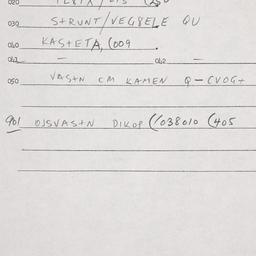 020
030 STRUNT/VEGSELE QU
040 KASTETA, (009
042 — 062 —
050 VASTN CM KAMEN Q-CVOGT
901 OJSVASTN DIKOP (/038010 (405